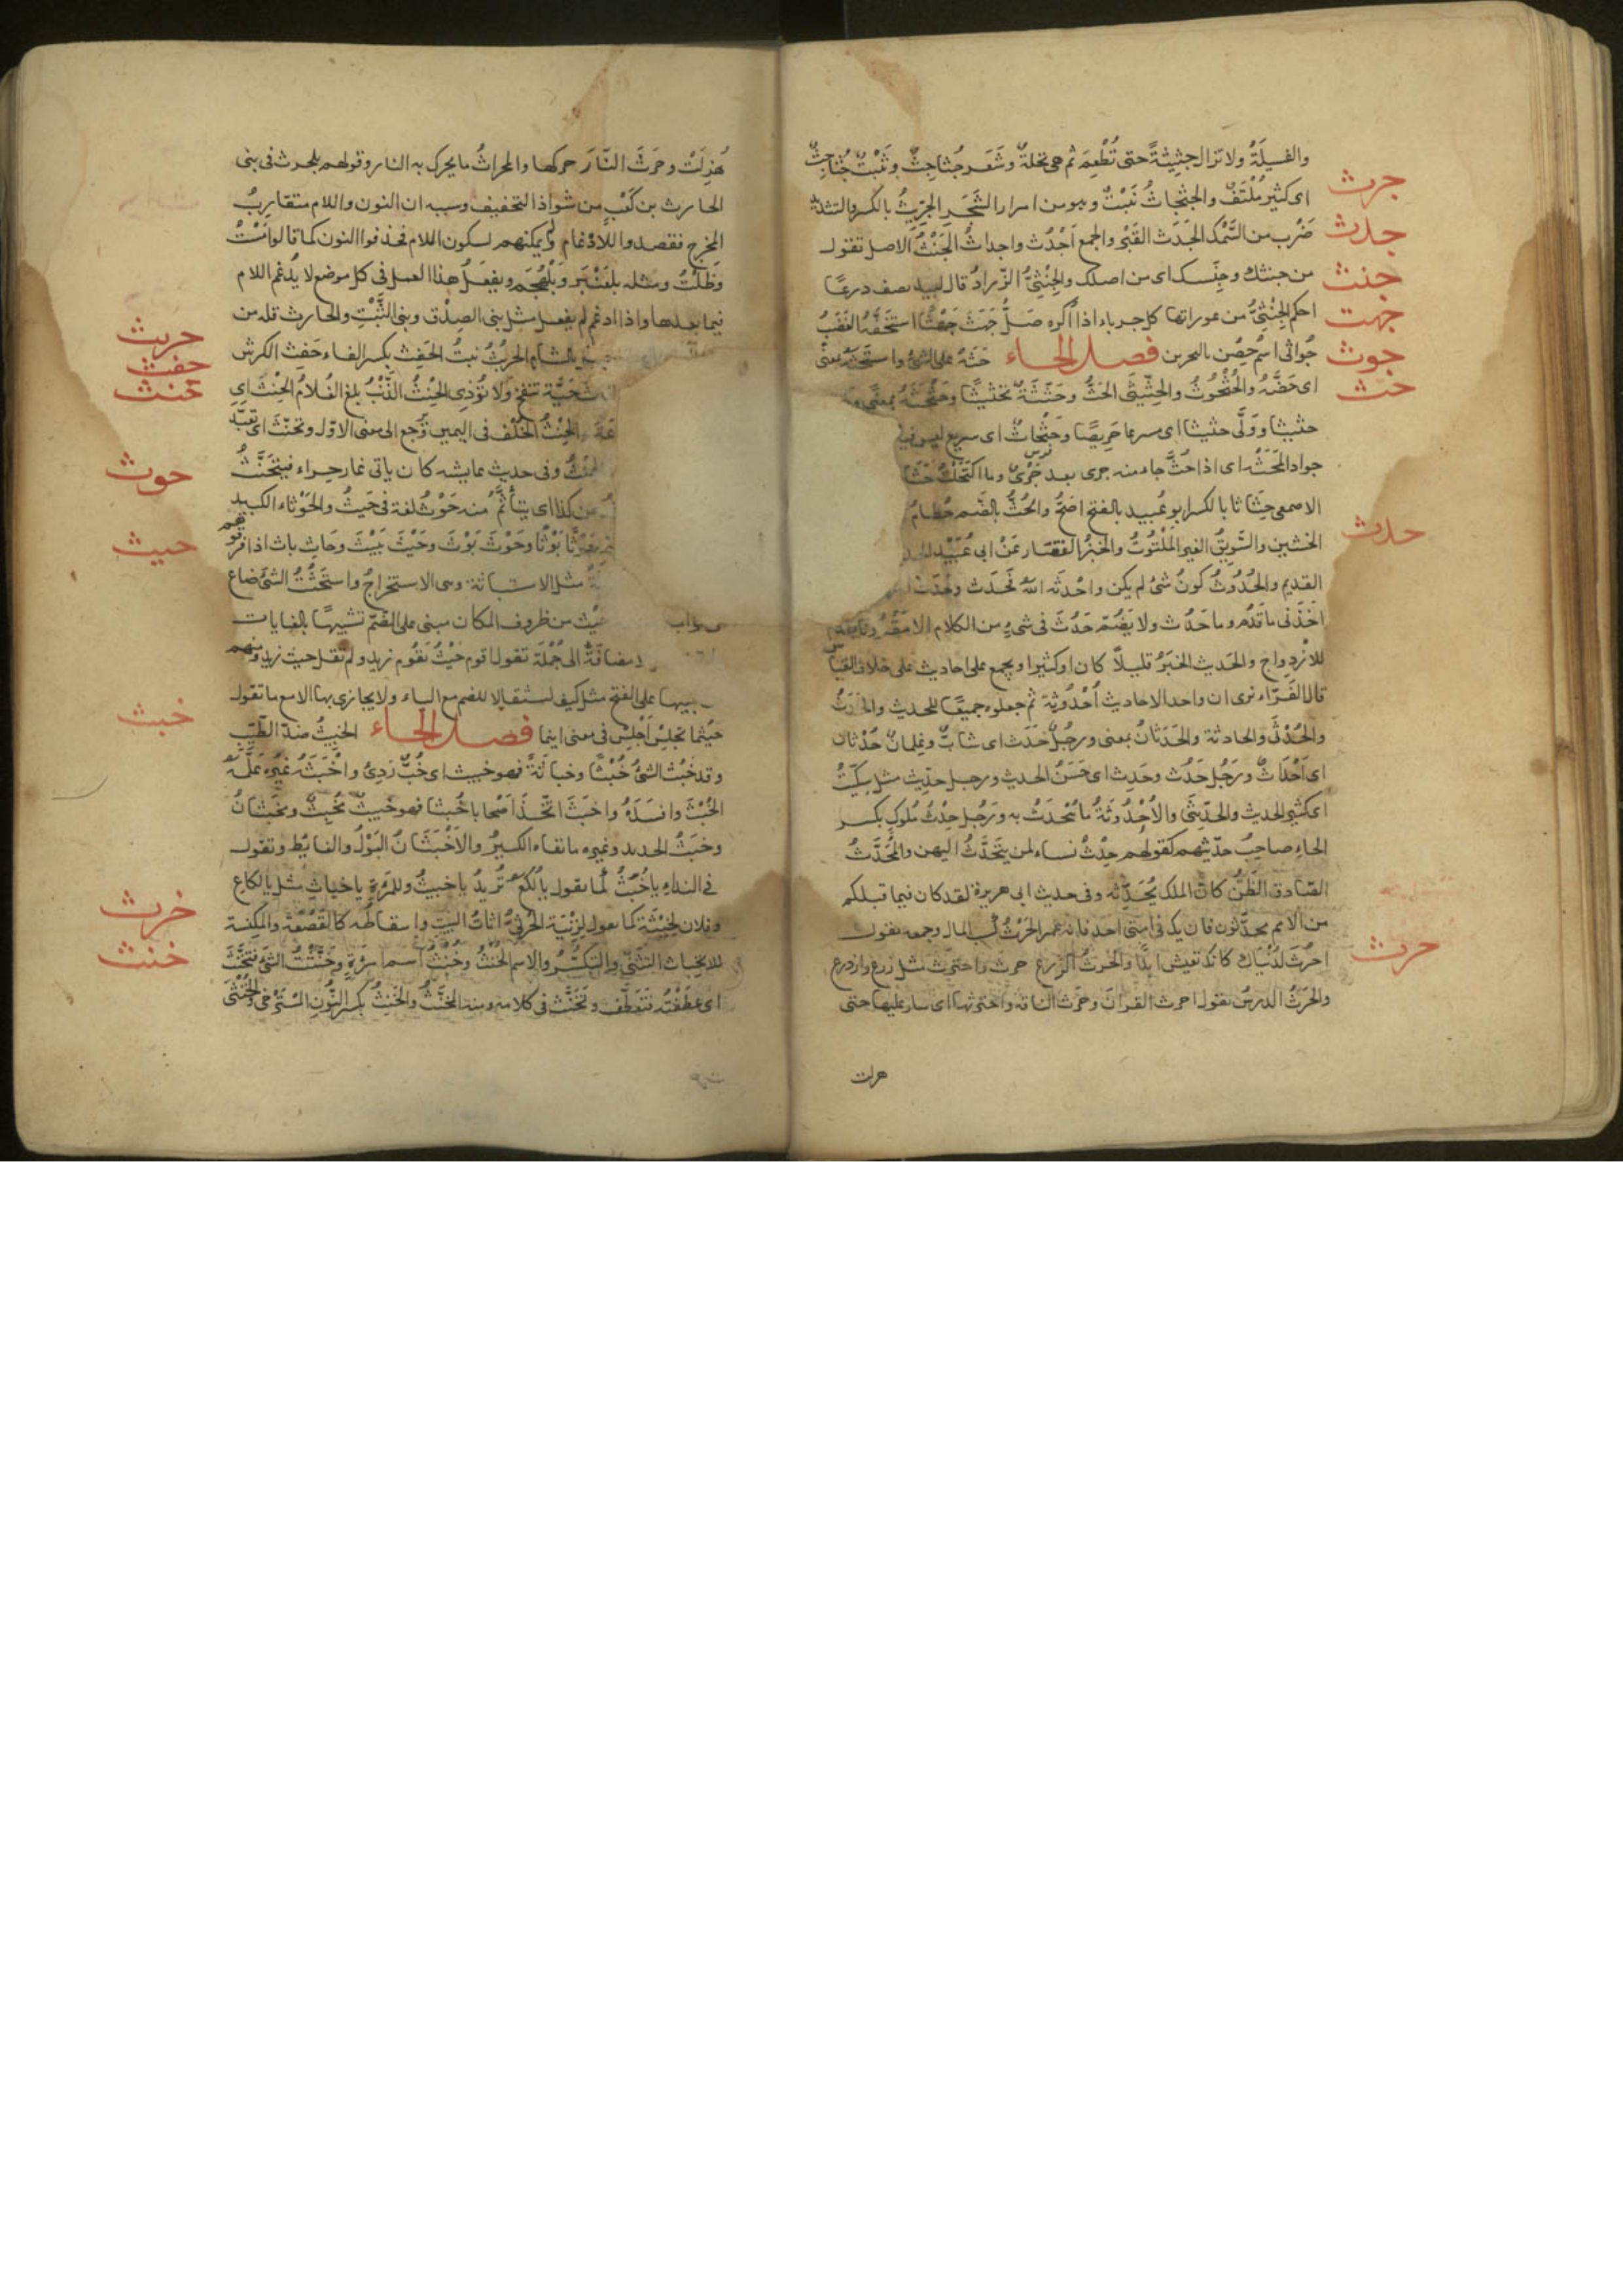 والفسيلة ولا تزال جثيثة حتى تُطْعِمَ ثم هى نخلة وشَعَر جُثاجِثٌ ونَبْتٌ جُثاجِثٌ
جرث
اى كثير مُلْتَفٌّ والجَثْجَاثُ نَبْتٌ وهو من امرار الشَّجَرِ الجِرِّيثُ بالكسر والتشديد
جدث
ضَرْب من السَّمَك الجَدَث القَبْر والجمع اَجْدُث واجداثٌ الجِنْثُ الاصل تقول
جنث
من جنثك وجِنْسك اى من اصلك والجِنْثِىُّ الزّرادُ قال لبيد يصف درعًا
جهث
احكم الجِنْثِىُّ من عوراتها كل حرباء اذا اُكره صَلَّ جَهَثَ جَهْثًا استخفّه الغَضَبُ
جوث
جُواثى اسْمُ حِصْن بالبحرين فصل الحاء حَثَّهُ على الشئ واستحثّه بمعنًى
حث
اى حَضَّهُ والحُثْحُوثُ والحِثِّيثَى الحَثُّ وحَثَّثَهُ تحثيثًا وحَثْحَثَهُ بمعنًى
حثيثا ووَلَّى حثيثا اى سرعا حَرِيصًا وحَثْحَاثٌ اى سريع ليس فيه
جواد المَحَثَّة اى اذا حُثَّ جاء منه جرى بعد جَرْىٍ وما اكتَحَلْتُ حَثَاثًا
الاصمعى حِثَاثا بالكسر ابو عُبيد بالفتح اصَحُّ والحُثُّ بالضَّم حُطَامُ
حدث
الخشين والسَّوِيقُ الغير المَلْتُوتُ والخبزُ القفار عَنْ ابى عُبَيْد
القديم والحُدُوثُ كونُ شئ لم يكن واحْدَثَه الله فَحَدَثَ وحَدَثَ
اخَذَنى ما قَدُمَ وما حَدُث ولا يُضَمّ حَدُثَ فى شىءٍ من الكلام الا مَعَ
للازْدِوَاج والحَديث الخَبَرُ قليلًا كان او كثيرا ويجمع على احاديث على خلاف القياس
قال الفَرّاء نرى ان واحد الاحاديث اُحْدُوثة ثم جعلوه جميعًا للحديث
والحُدْثَى والحادثة والحَدَثانُ بمعنى ورجُلٌ حَدَث اى شابّ وغِلمانٌ حُدْثان
اى اَحْدَاثٌ ورَجُل حَدُث وحَدِث اى حَسَنُ الحديث ورجل حِدِّيث مثل سِكِّيتٌ
اى كثير الحديث والحِدِّيثَى والاُحْدُوثَةُ ما يُتَحَدّثُ به ورَجُل حِدْثُ مُلُوكٍ بكسر
الحاءِ صاحِبُ حديثهم كقولهم حِدْثُ نساء لمن يَتَحَدَّثُ اليهن والمُحَدَّثُ
الصّادق الظَنُّ كانَّ الملك يُحَدِّثه وفى حديث ابى هريرة لقد كان فيما قبلكم
من الامم محدَّثون فان يك فى امتى احد فانه عمر الحَرْثُ كسب المال وجمعه يقول
حرث
احرُثْ لدُنْيَاك كانك تعيش ابدًا والحرثُ الزرع حرث واحترث مثل زرع وازدرع
والحَرْثُ الدرسُ يقول احرث القرآنَ وحرث الناقة واحترثها اى سار عليها حتى
هزلت
هُزِلَتْ وحَرَثَ النّارَ حركها والمحراثُ ما يحرك به النار وقولهم بلحرث فى بنى
الحارث بن كَعْب من شواذ التخفيف وسببه ان النون واللام متقاربُ
المخرج فقصدوا للادْغام ولم يمكنهم لسكون اللام فحذفوا النون كما قالوا مَسْتُ
وظَلْتُ ومثله بلعَنْبَر وبَلْهُجَيم ويفعلُ هذا العمل فى كل موضع لا يُدغم اللام
فيما بعدها واذا ادغم لم يفعل مثل بنى الصِدْق وبنى الثَّبْتِ والحارث قلة من
حربث
بالشام الحُرْبُثُ نبتُ الحَفِث بكسر الفاء حَفِث الكرش
حفث
حَيَّة تنفخ ولا تُؤذى الحِنْثُ الذَّنْبُ بلغ الغُلامُ الحِنْثَ اى
حنث
الحِنْثُ الخُلْف فى اليمين رُجع الى معنى الاوّل وتحنّث اى تعبّد
وفى حديث عايشه كان ياتى غار حِراء فيتحَنَّثُ
حوث
من كذا اى يتأثَّم منه حَوْثُ لغة فى حَيثُ والحَوْثاء الكبد
حَوْثًا بَوْثًا وحَوْثَ بَوْثَ وحَيْثَ بَيْثَ وحَاثِ باث اذا فرقهم
حيث
مثل الاستباثة وهى الاستخراجُ واستَحَثْتُ الشئَ ضاع
حَيْث من ظروف المكان مبنى على الضّم تشبيهًا بالغايات
اضافةً الى جُملة تقول اقوم حَيْثُ يقُوم زيد ولم تقل حيث زيد ومنهم
يبنيها على الفتح مثل كيف استثقالا للضم مع الياء ولا يجازى بها الا مع ما تقول
خبث
حيْثما تجلِسْ اَجْلِسْ فى معنى اينما فصل الخاء الخبيثُ ضدّ الطيّب
وقد خبُث الشئُ خُبْثًا وخباثةً فهو خبيث اى خُبٌّ رَدِئٌ واخْبَثَهُ غيْره عَلَّمَهُ
الخُبْثَ وافسَدَهُ واخبَثَ اتّخَذَ اَصْحابا خُبثا فهو خبيثٌ مُخبِثٌ ومَخْبَثانُ
وخبَثُ الحديد وغيره ما نفاه الكيرُ والاَخْبَثَانُ البَوْلُ والغايُط وتقول
فى النداء يا خُبَثُ كما تقول يا لُكَعُ تُريدُ يا خبيثُ وللمَرءة يا خباثِ مثل يا لكاعِ
خرث
وفلان لخِبْثَةٍ كما تقول لِزِنْيَة الخُرْثِىُّ اثاثُ البيتِ واسقاطُه كالقَصْعَةِ والمكنسة
خنث
الانخناث التثنّى والتكسّرُ والاسم الخُنْثُ وخُنْثُ اسم امرَءةٍ وخَنَّثْتُ الشئَ فتخنَّثَ
اى عطَفْتُه فتعَطّفَ وتخنَّث فى كلامه ومنه المخنَّثُ والخَنِثُ بكسر النُّونِ المُسْتَرخى والخُنْثَى